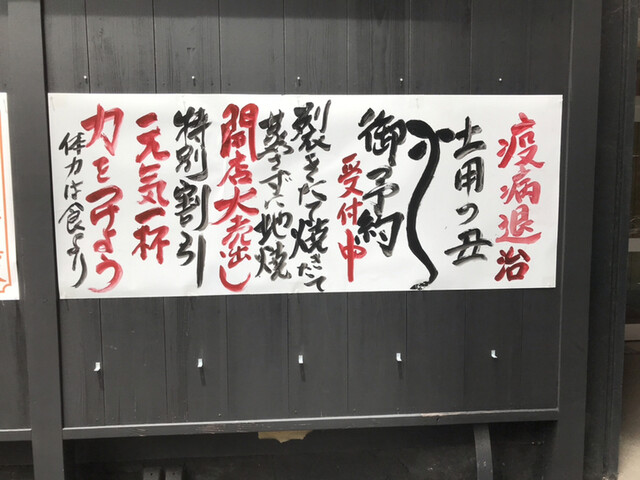 疫病退治
土用の丑
う
御予約
受付中
裂きたて焼きたて
蒸さずに地焼
開店大売出し
特別割引
元気一杯
力をつけよう
体力は食より